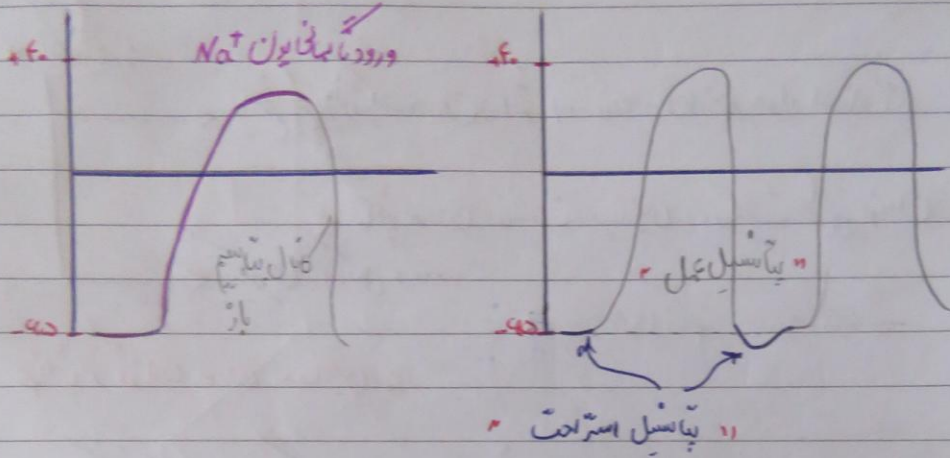 ورود ناگهانی یون Na⁺
+۴۰
کانال پتاسیم
باز
-۶۵
+۴۰
"پتانسیل عمل"
-۶۵
"پتانسیل استراحت"